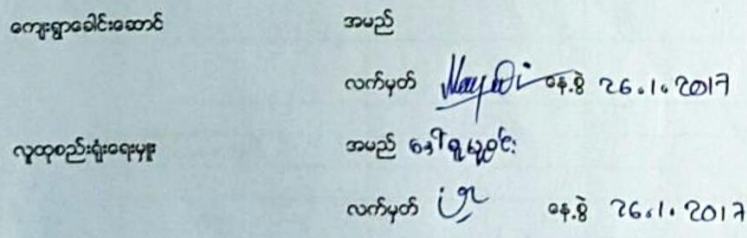 ကျေးရွာခေါင်းဆောင် အမည်
လက်မှတ် နေ့စွဲ 26.1.2017
လူထုစည်းရုံးရေးမှူး အမည် ဒေါ်
လက်မှတ် နေ့စွဲ 26.1.2017